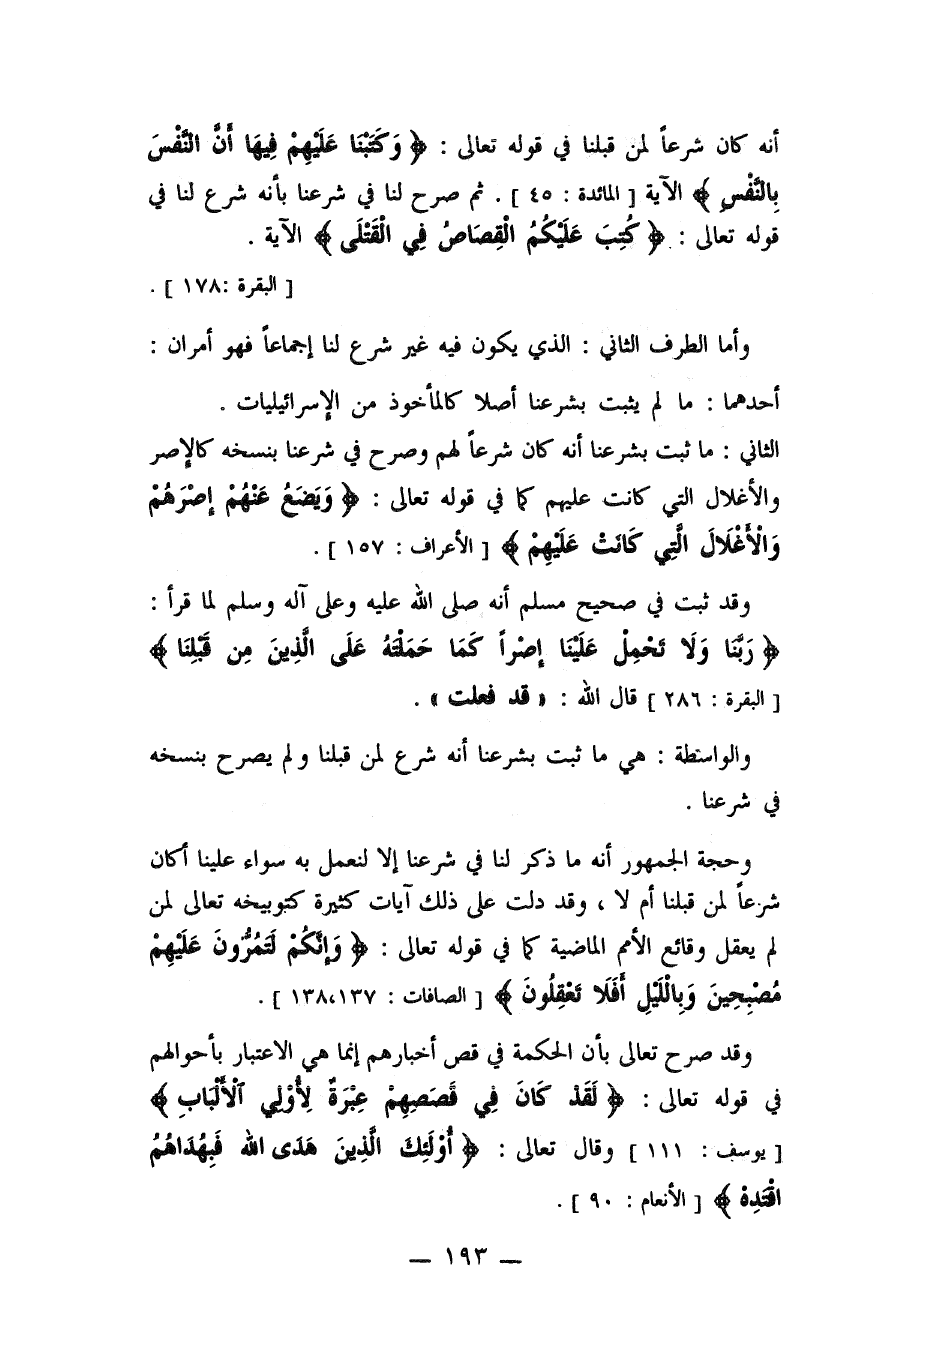 أنه كان شرعاً لمن قبلنا في قوله تعالى : ﴿ وَكَتَبْنَا عَلَيْهِمْ فِيهَا أَنَّ النَّفْسَ
بِالنَّفْسِ ﴾ الآية [ المائدة : ٤٥ ] . ثم صرح لنا في شرعنا بأنه شرع لنا في
قوله تعالى : ﴿ كُتِبَ عَلَيْكُمُ الْقِصَاصُ فِي الْقَتْلَى ﴾ الآية .
[ البقرة :١٧٨ ] .
وأما الطرف الثاني : الذي يكون فيه غير شرع لنا إجماعاً فهو أمران :
أحدهما : ما لم يثبت بشرعنا أصلا كالمأخوذ من الإسرائيليات .
الثاني : ما ثبت بشرعنا أنه كان شرعاً لهم وصرح في شرعنا بنسخه كالإصر
والأغلال التي كانت عليهم كما في قوله تعالى : ﴿ وَيَضَعُ عَنْهُمْ إِصْرَهُمْ
وَالْأَغْلَالَ الَّتِي كَانَتْ عَلَيْهِمْ ﴾ [ الأعراف : ١٥٧ ] .
وقد ثبت في صحيح مسلم أنه صلى الله عليه وعلى آله وسلم لما قرأ :
﴿ رَبَّنَا وَلَا تَحْمِلْ عَلَيْنَا إِصْراً كَمَا حَمَلْتَهُ عَلَى الَّذِينَ مِن قَبْلِنَا ﴾
[ البقرة : ٢٨٦ ] قال الله : « قد فعلت » .
والواسطة : هي ما ثبت بشرعنا أنه شرع لمن قبلنا ولم يصرح بنسخه
في شرعنا .
وحجة الجمهور أنه ما ذكر لنا في شرعنا إلا لنعمل به سواء علينا أكان
شرعاً لمن قبلنا أم لا ، وقد دلت على ذلك آيات كثيرة كتوبيخه تعالى لمن
لم يعقل وقائع الأمم الماضية كما في قوله تعالى : ﴿ وَإِنَّكُمْ لَتَمُرُّونَ عَلَيْهِمْ
مُصْبِحِينَ وَبِالْلَيْلِ أَفَلَا تَعْقِلُونَ ﴾ [ الصافات : ١٣٨،١٣٧ ] .
وقد صرح تعالى بأن الحكمة في قص أخبارهم إنما هي الاعتبار بأحوالهم
في قوله تعالى : ﴿ لَقَدْ كَانَ فِي قَصَصِهِمْ عِبْرَةٌ لِأُوْلِي ٱلْأَلْبَابِ ﴾
[ يوسف : ١١١ ] وقال تعالى : ﴿ أُوْلَئِكَ الَّذِينَ هَدَى الله فَبِهُدَاهُمُ
اقْتَدِهْ ﴾ [ الأنعام : ٩٠ ] .
— ١٩٣ —